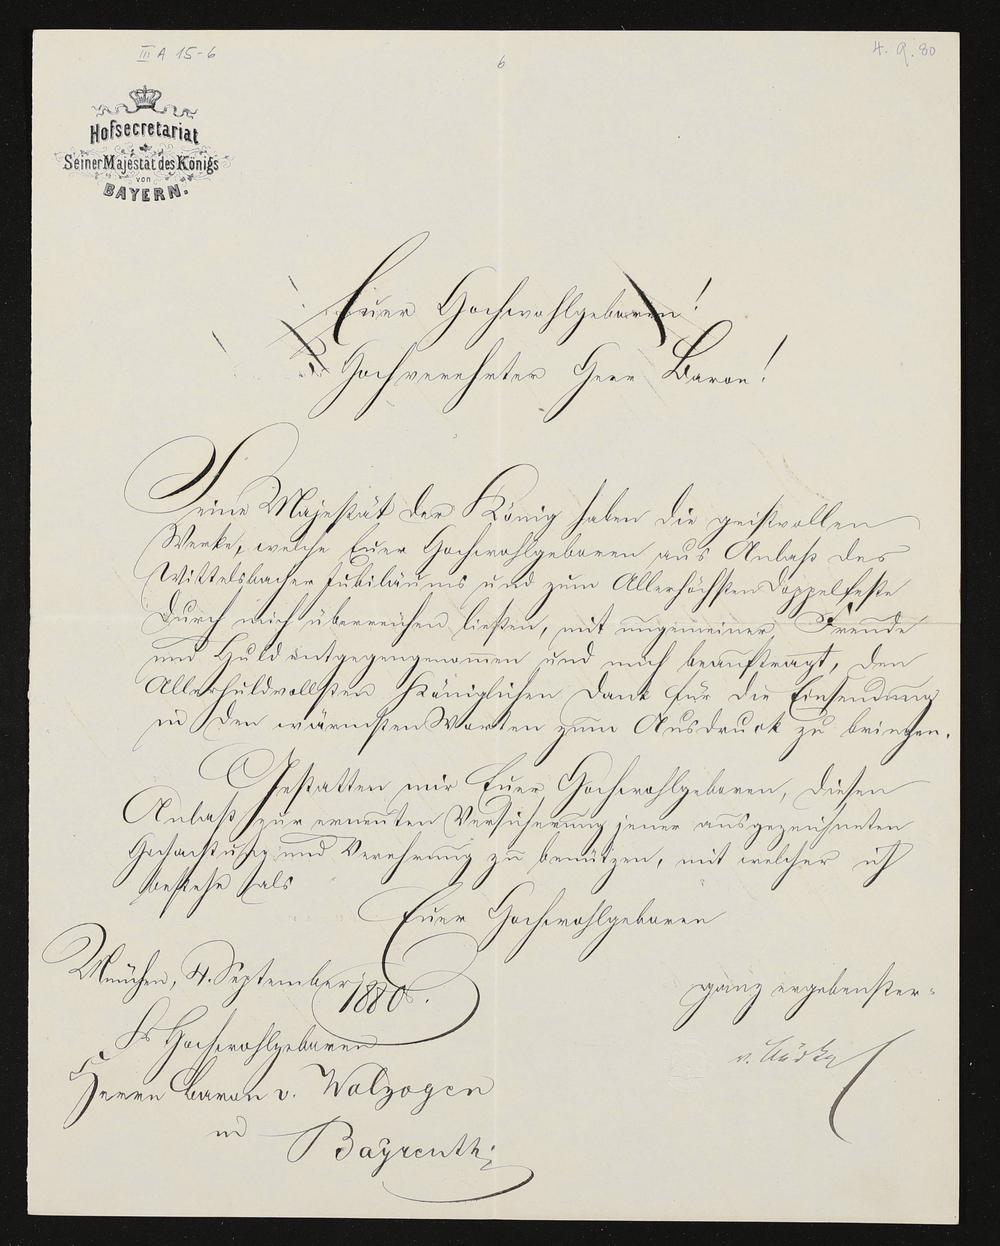 III A 15-6
6
4. 9. 80
Hofsecretariat
Seiner Majestät des Königs
von
BAYERN.
Euer Hochwohlgeboren!
Hochverehrter Herr Baron!
Seine Majestät der König haben die geistvollen
Werke, welche Euer Hochwohlgeboren aus Anlaß des
Wittelsbacher Jubiläums und zum Allerhöchsten Doppelfeste
durch mich überreichen ließen, mit ungemeiner Freude
und Huld entgegengenommen und mich beauftragt, den
Allerhuldvollsten Königlichen Dank für die Einsendung
in den wärmsten Worten zum Ausdruck zu bringen.
Gestatten mir Euer Hochwohlgeboren, diesen
Anlaß zur erneuten Versicherung jener ausgezeichneten
Hochachtung und Verehrung zu benützen, mit welcher ich
bestehe als
Euer Hochwohlgeboren
München, 4. September 1880.
ganz ergebenster
Sr Hochwohlgeboren
v. Bürkel
Herrn Baron v. Wolzogen
in
Bayreuth